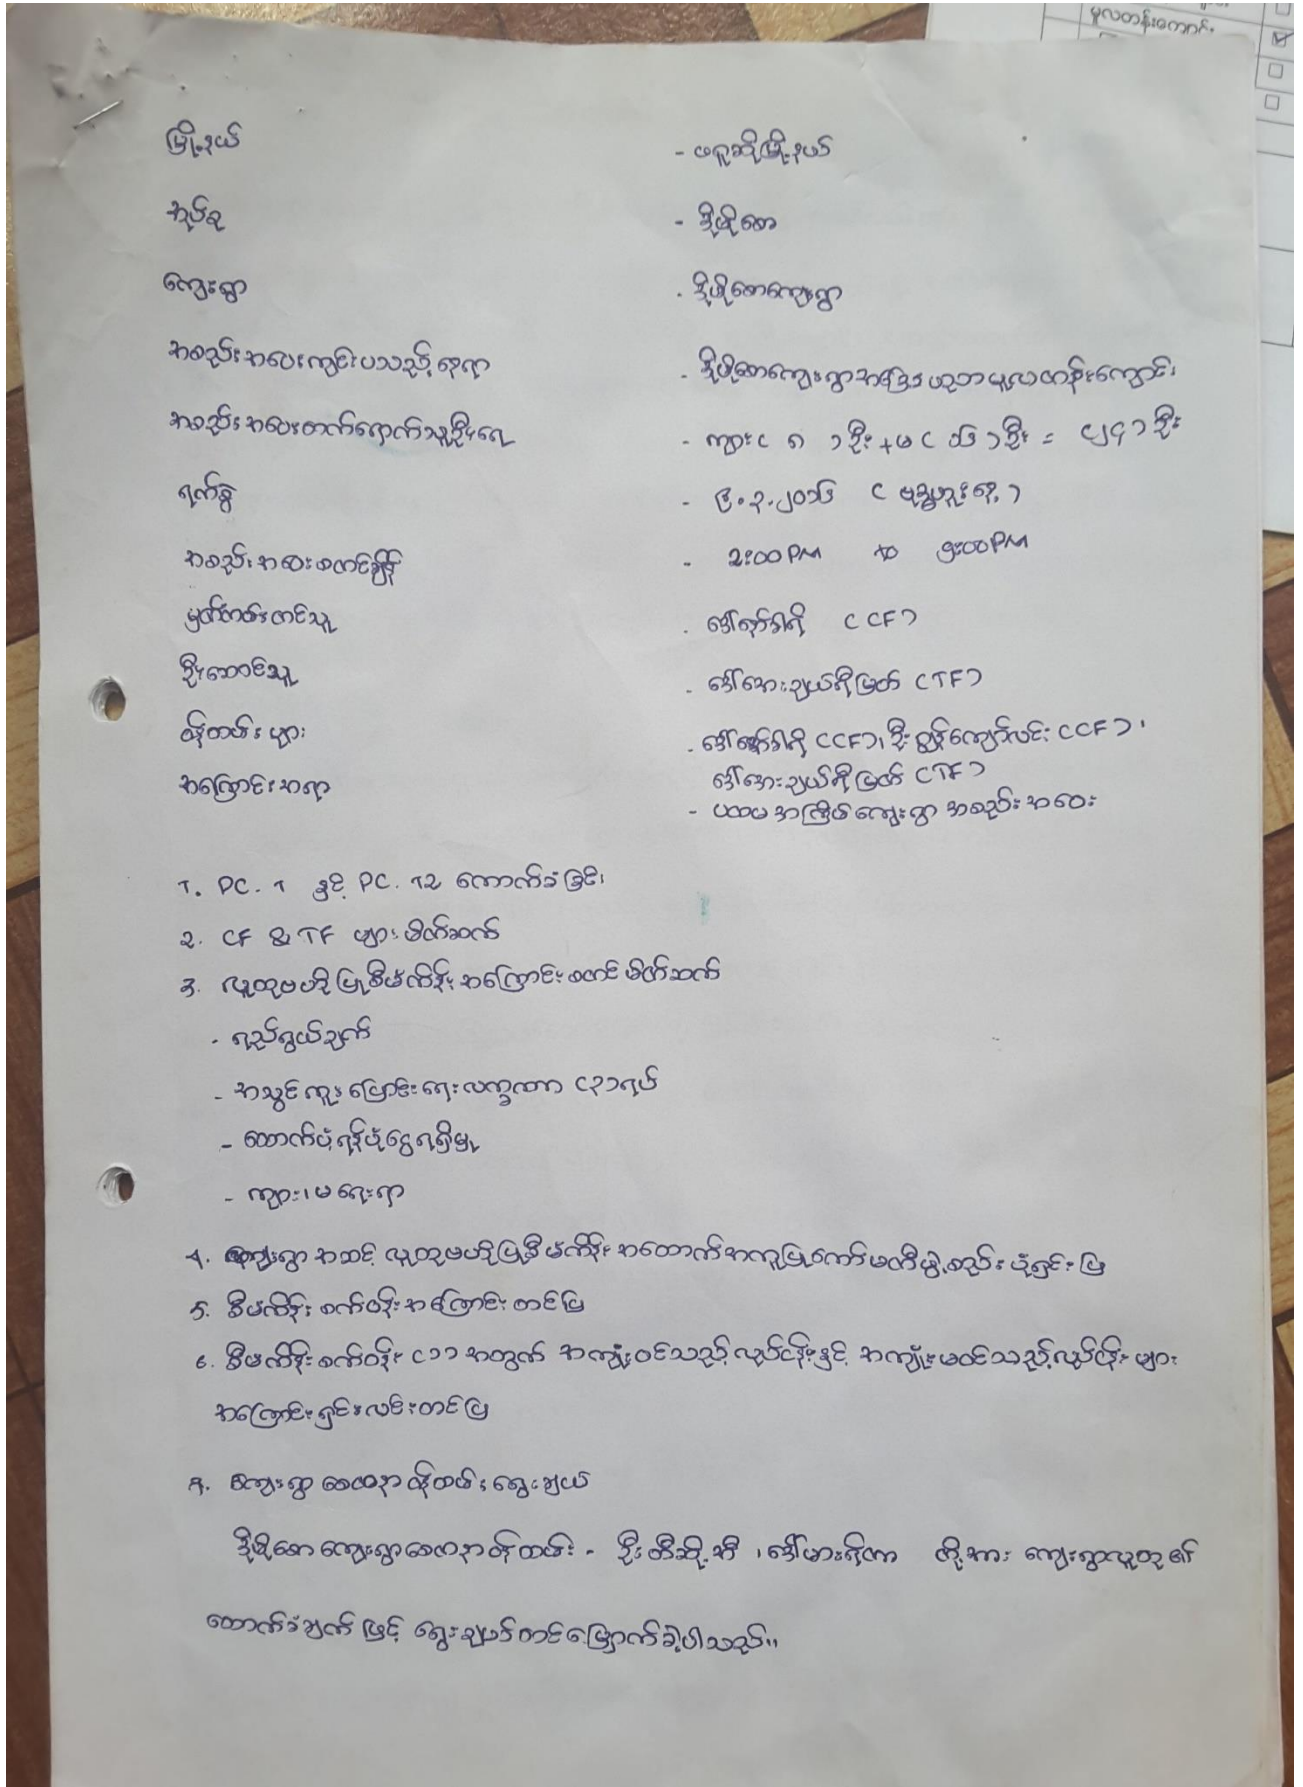 မူလတန်းကျောင်း
မြို့နယ် - ဖရူဆိုမြို့နယ်
အုပ်စု - ဒိုမိုဆော
ကျေးရွာ - ဒိုမိုဆောကျေးရွာ
အစည်းအဝေးကျင်းပသည့်နေရာ - ဒိုမိုဆောကျေးရွာအခြေခံပညာမူလတန်းကျောင်း
အစည်းအဝေးတက်ရောက်သူဦးရေ - ကျား ( ၈ ) ဦး + မ ( ၁၆ ) ဦး = ( ၂၄ ) ဦး
ရက်စွဲ - ၃.၂.၂၀၁၆ ( ဗုဒ္ဓဟူးနေ့ )
အစည်းအဝေးစတင်ချိန် - 2:00 PM to 5:00 PM
မှတ်တမ်းတင်သူ - ( CF )
ဦးဆောင်သူ - ( TF )
ဝန်ထမ်းများ - ( CF )၊ ဦးဇွန်ကျော်လင်း ( CF )၊
( TF )
အကြောင်းအရာ - ပထမအကြိမ်ကျေးရွာအစည်းအဝေး
1. PC. 1 နှင့် PC. 12 ကောက်ခံခြင်း
2. CF & TF များမိတ်ဆက်
3. လူထုဗဟိုပြုစီမံကိန်းအကြောင်းစတင်မိတ်ဆက်
- ရည်ရွယ်ချက်
- အသွင်ကူးပြောင်းရေးလက္ခဏာ (၃)ရပ်
- ထောက်ပံ့ရန်ပုံငွေရရှိမှု
- ကျား၊မရေးရာ
4. ကျေးရွာအဆင့် လူထုဗဟိုပြုစီမံကိန်းအထောက်အကူပြုကော်မတီဖွဲ့စည်းပုံရှင်းပြ
5. စီမံကိန်းစက်ဝန်းအကြောင်းတင်ပြ
6. စီမံကိန်းစက်ဝန်း (၁) အတွက် အကျုံးဝင်သည့်လုပ်ငန်းနှင့် အကျုံးမဝင်သည့်လုပ်ငန်းများ
အကြောင်းရှင်းလင်းတင်ပြ
7. ကျေးရွာစေတနာ့ဝန်ထမ်းရွေးချယ်
ဒိုမိုဆောကျေးရွာစေတနာ့ဝန်ထမ်း - ဦးတီဆို့အီ ၊ ဒေါ်မားရီတာ တို့အား ကျေးရွာလူထု၏
ထောက်ခံချက်ဖြင့် ရွေးချယ်တင်မြှောက်ခဲ့ပါသည်။